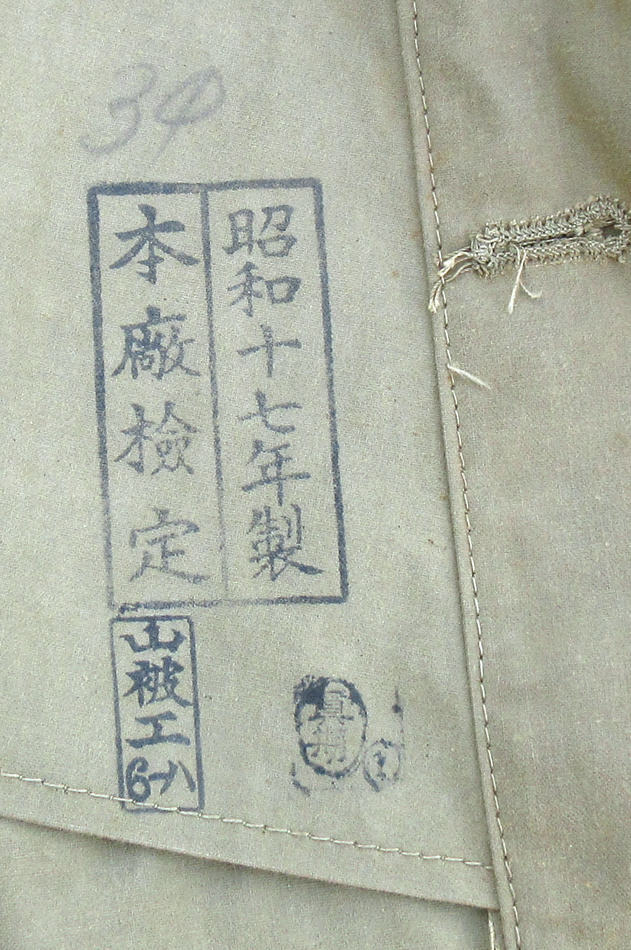 34
昭和十七年製
本廠検定
山被工